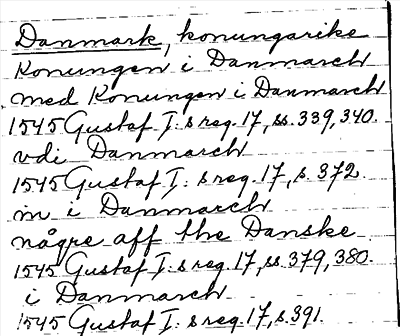 Danmark, konungarike
Konungen i Danmarch
med Konungen i Danmarch
1545 Gustaf I:s reg. 17, ss. 339, 340.
vdi Danmarch
1545 Gustaf I:s reg. 17, s. 372.
in i Danmarch
någre aff the Danske
1545 Gustaf I:s reg. 17, ss. 379, 380.
i Danmarch
1545 Gustaf I:s reg. 17, s. 391.